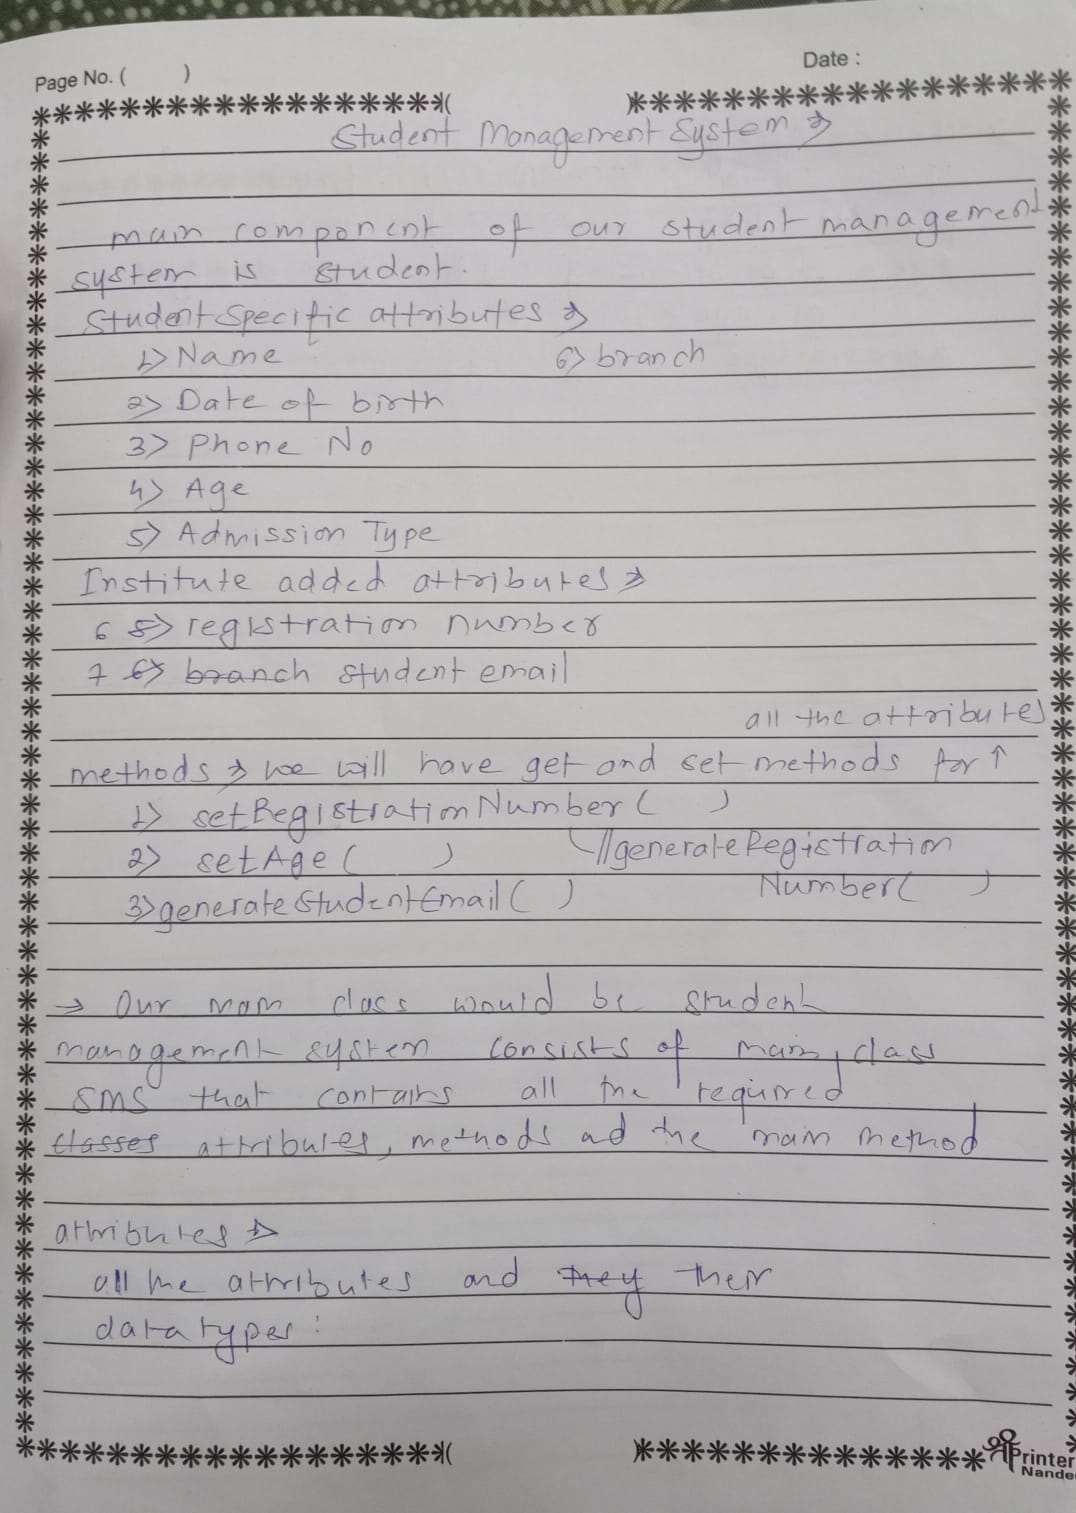 Page No. ( )
Date :
Student Management System →
main component of our student management
system is student.
Student specific attributes →
1> Name 6> branch
2> Date of birth
3> Phone No
4> Age
5> Admission Type
Institute added attributes →
6 5> registration number
7 6> branch student email
all the attributes
methods → we will have get and set methods for ↑
1> setRegistrationNumber( )
2> setAge( ) //generateRegistration
Number( )
3> generateStudentEmail( )
→ Our main class would be student
management system consists of main class
SMS that contains all the required
classes attributes, methods ad the main method
attributes →
all the attributes and they their
datatypes:
Printer
Nande